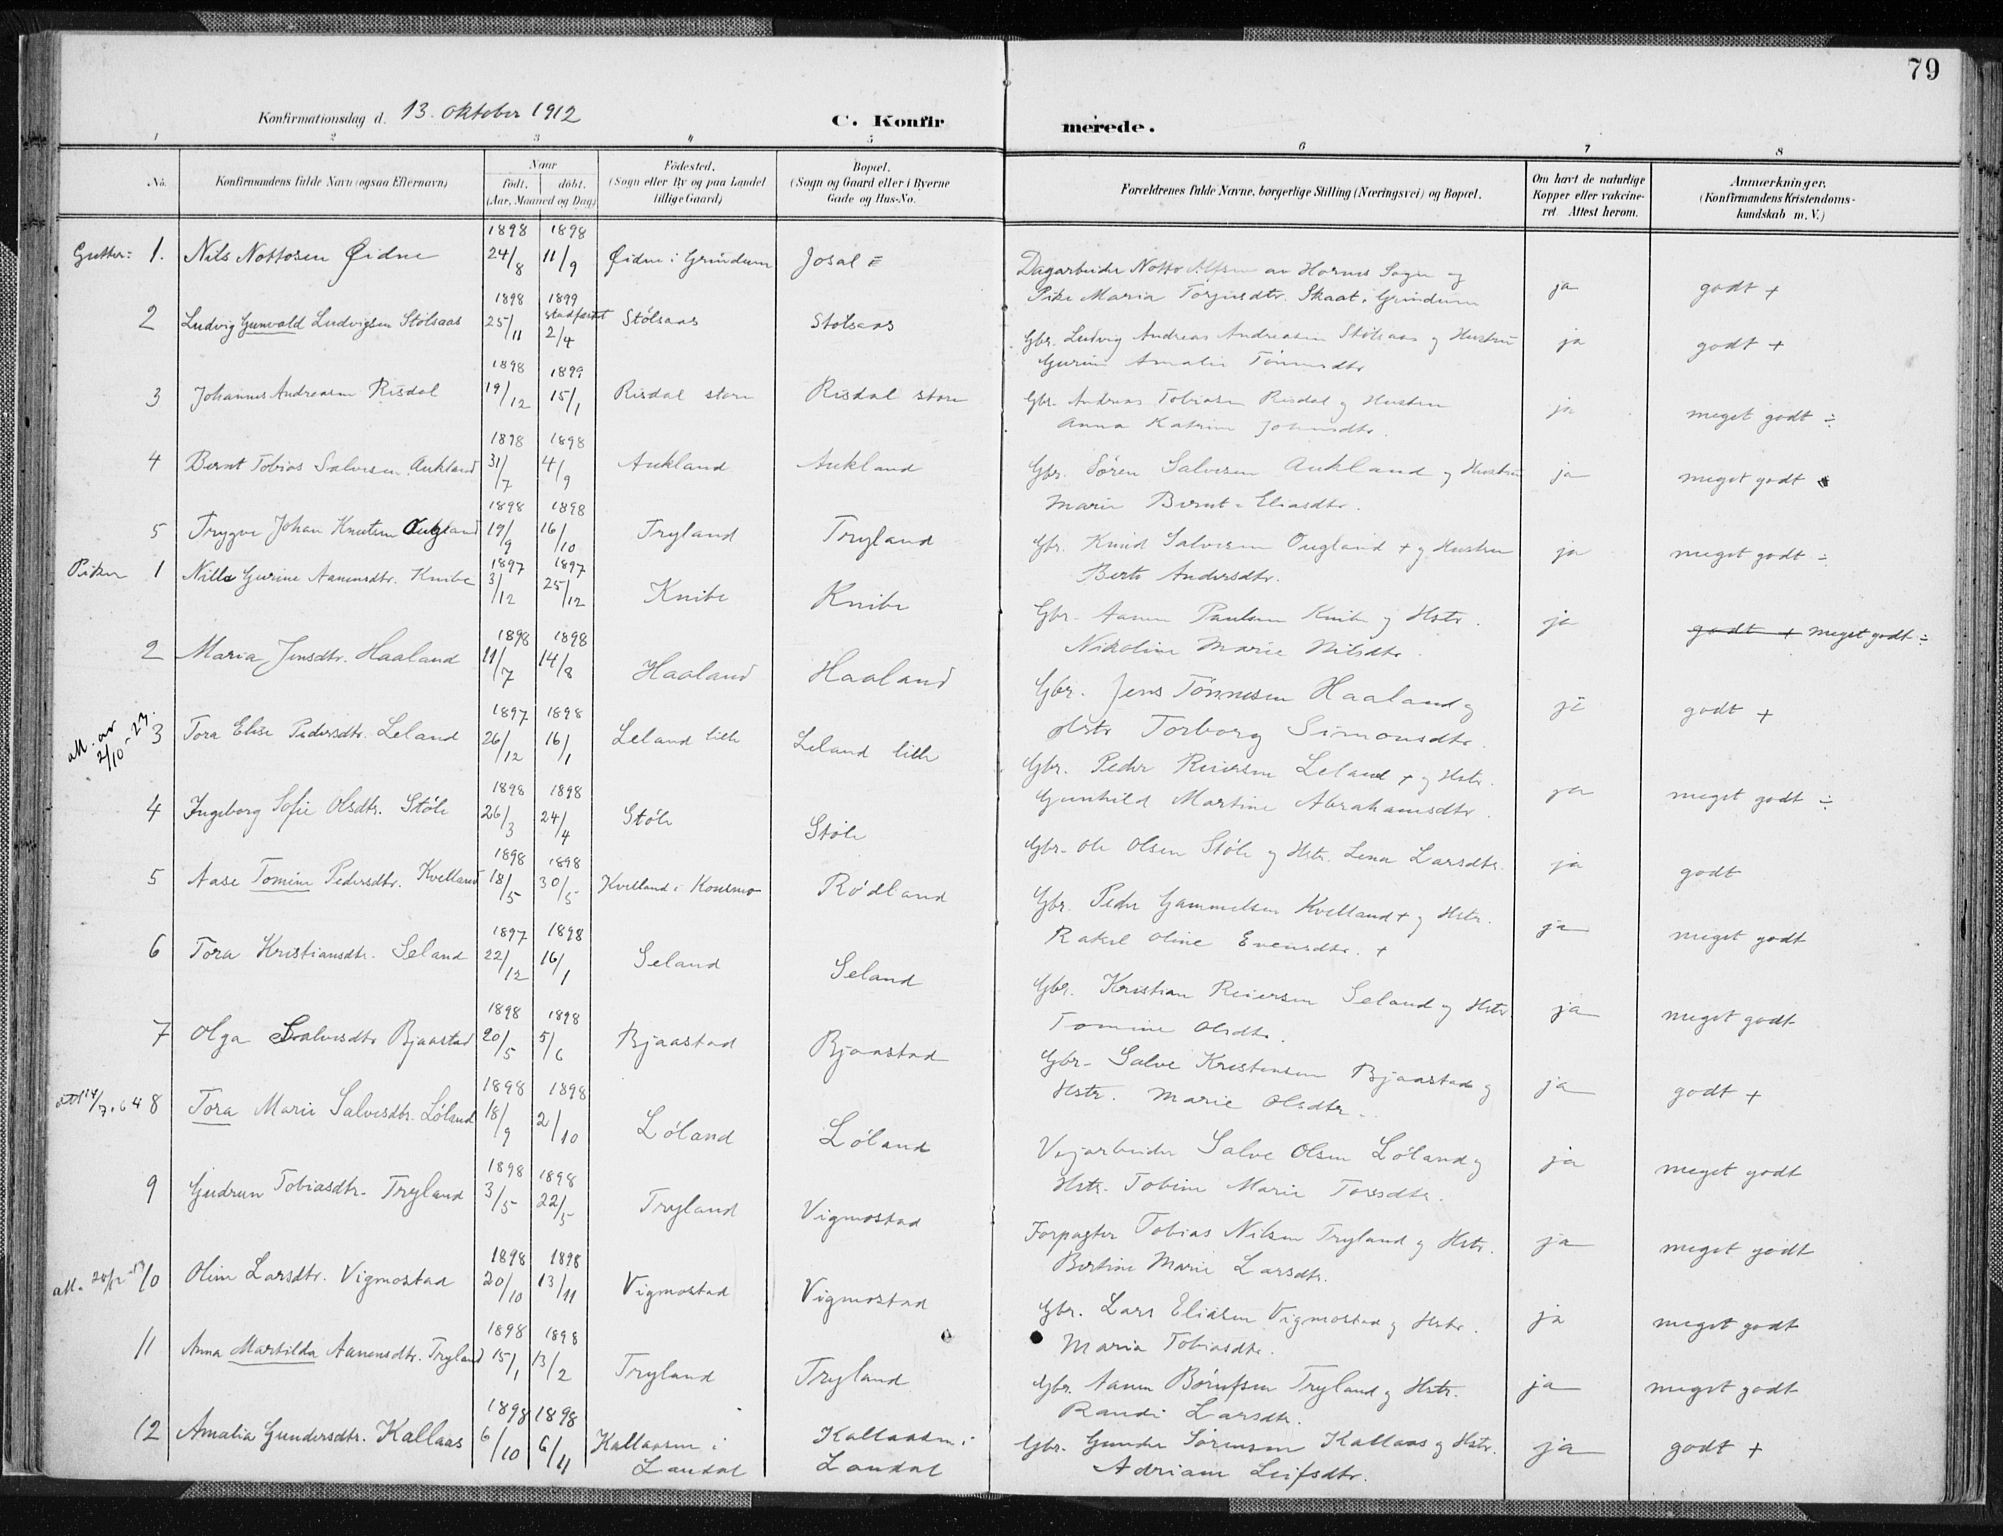 79
Konfirmationsdag d. 13. oktober 1912
C. Konfirmerede.
1 2 3 4 5 6 7 8
No. Konfirmandens fulde Navn (ogsaa Efternavn) Naar født. døbt. (Aar, Maaned og Dag) Fødested. (Sogn eller By og paa Landet tillige Gaard) Bopæl. (Sogn og Gaard eller i Byerne Gade og Hus-No. Forældrenes fulde Navne, borgerlige Stilling (Næringsvei) og Bopæl. Om havt de naturlige Kopper eller vakcineret Attest herom. Anmærkninger. (Konfirmandens Kristendomskundskab m. V.)
Gutter: 1. Nils Nottosen Øidne 1898 24/8 1898 11/9 Øidne i Grindum Josal Dagarbeider Notto Alfsen av Hornes Sogn og
Pike Maria Torjusdtr. Skaat i Grindum ja godt +
2 Ludvig Gunvald Ludvigsen Stølsaas 1898 25/11 1899 stadfæstet 2/4 Stølsaas Stølsaas Gbr. Ludvig Andreas Andreasen Stølsaas og Hustru
Gurine Amalie Tønnesdtr. ja godt +
3 Johannes Andreasen Risdal 1898 19/12 1899 15/1 Risdal store Risdal store Gbr. Andreas Tobiasen Risdal og Hustru
Anna Katrine Johnsdtr. ja meget godt ÷
4 Bernt Tobias Salvesen Aukland 1898 31/7 1898 4/9 Aukland Aukland Gbr. Søren Salvesen Aukland og Hustru
Marie Bernt-Eliasdtr. ja meget godt
5 Trygve Johan Knutsen Ougland 1898 19/9 1898 16/10 Tryland Tryland Gbr. Knud Salvesen Ougland + og Hustru
Berte Andersdtr. ja meget godt ÷
Piker 1 Nille Gurine Aanensdtr. Knibe 1897 3/12 1897 25/12 Knibe Knibe Gbr. Aanen Paulsen Knibe og Hstr.
Nikoline Marie Nilsdtr. ja godt + meget godt ÷
2 Maria Jensdtr. Haaland 1898 11/7 1898 14/8 Haaland Haaland Gbr. Jens Tønnesen Haaland og
Hstr Torborg Simonsdtr. ja godt +
att. av 2/10-23. 3 Tora Elise Pedersdtr. Leland 1897 26/12 1898 16/1 Leland lille Leland lille Gbr. Peder Reiersen Leland + og Hstr.
Gunhild Martine Abrahamsdtr. ja meget godt ÷
4 Ingeborg Sofie Olsdtr. Støle 1898 26/3 1898 24/4 Støle Støle Gbr. Ole Olsen Støle og Hstr. Lena Larsdtr. ja godt
5 Aase Tomine Pedersdtr. Kvelland 1898 18/5 1898 30/5 Kvelland i Konsmo Rødland Gbr. Peder Gammelsen Kvelland + og Hstr.
Rakel Oline Evensdtr. + ja meget godt
6 Tora Kristiansdtr. Seland 1897 22/12 1898 16/1 Seland Seland Gbr. Kristian Reiersen Seland og Hstr
Tomine Olsdtr. ja meget godt
7 Olga Salvesdtr Bjaastad 1898 20/5 1898 5/6 Bjaastad Bjaastad Gbr. Salve Kristensen Bjaastad og
Hstr. Marie Olsdtr. ja godt +
att 14/7.64 8 Tora Marie Salvesdtr. Løland 1898 18/9 1898 2/10 Løland Løland Vejarbeider Salve Olsen Løland og
Hstr. Tobine Marie Toresdtr. ja meget godt
9 Gudrun Tobiasdtr. Tryland 1898 3/5 1898 22/5 Tryland Vigmostad Forpagter Tobias Nilsen Tryland og Hstr.
Bertine Marie Larsdtr. ja meget godt
att. 10 Oline Larsdtr. Vigmostad 1898 20/10 1898 13/11 Vigmostad Vigmostad Gbr. Lars Eliasen Vigmostad og Hstr.
Maria Tobiasdtr. ja meget godt
11 Anna Martilda Aanensdtr. Tryland 1898 15/1 1898 13/2 Tryland Tryland Gbr. Aanen Børufsen Tryland og Hstr.
Randi Larsdtr. ja meget godt
12 Amalia Gundersdtr. Kallaas 1898 6/10 1898 6/11 Kallaasen i Laudal Kallaasen i Laudal Gbr. Gunder Sørensen Kallaas og Hstr.
Adriane Leifsdtr. ja godt +